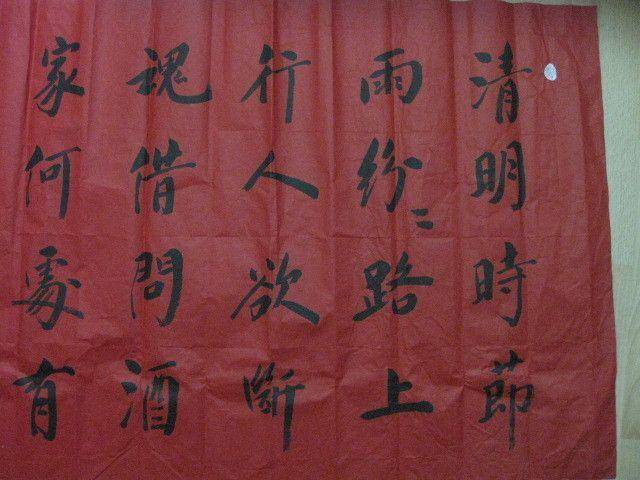 清明時節
雨紛二路上
行人欲斷
魂借問酒
家何處有